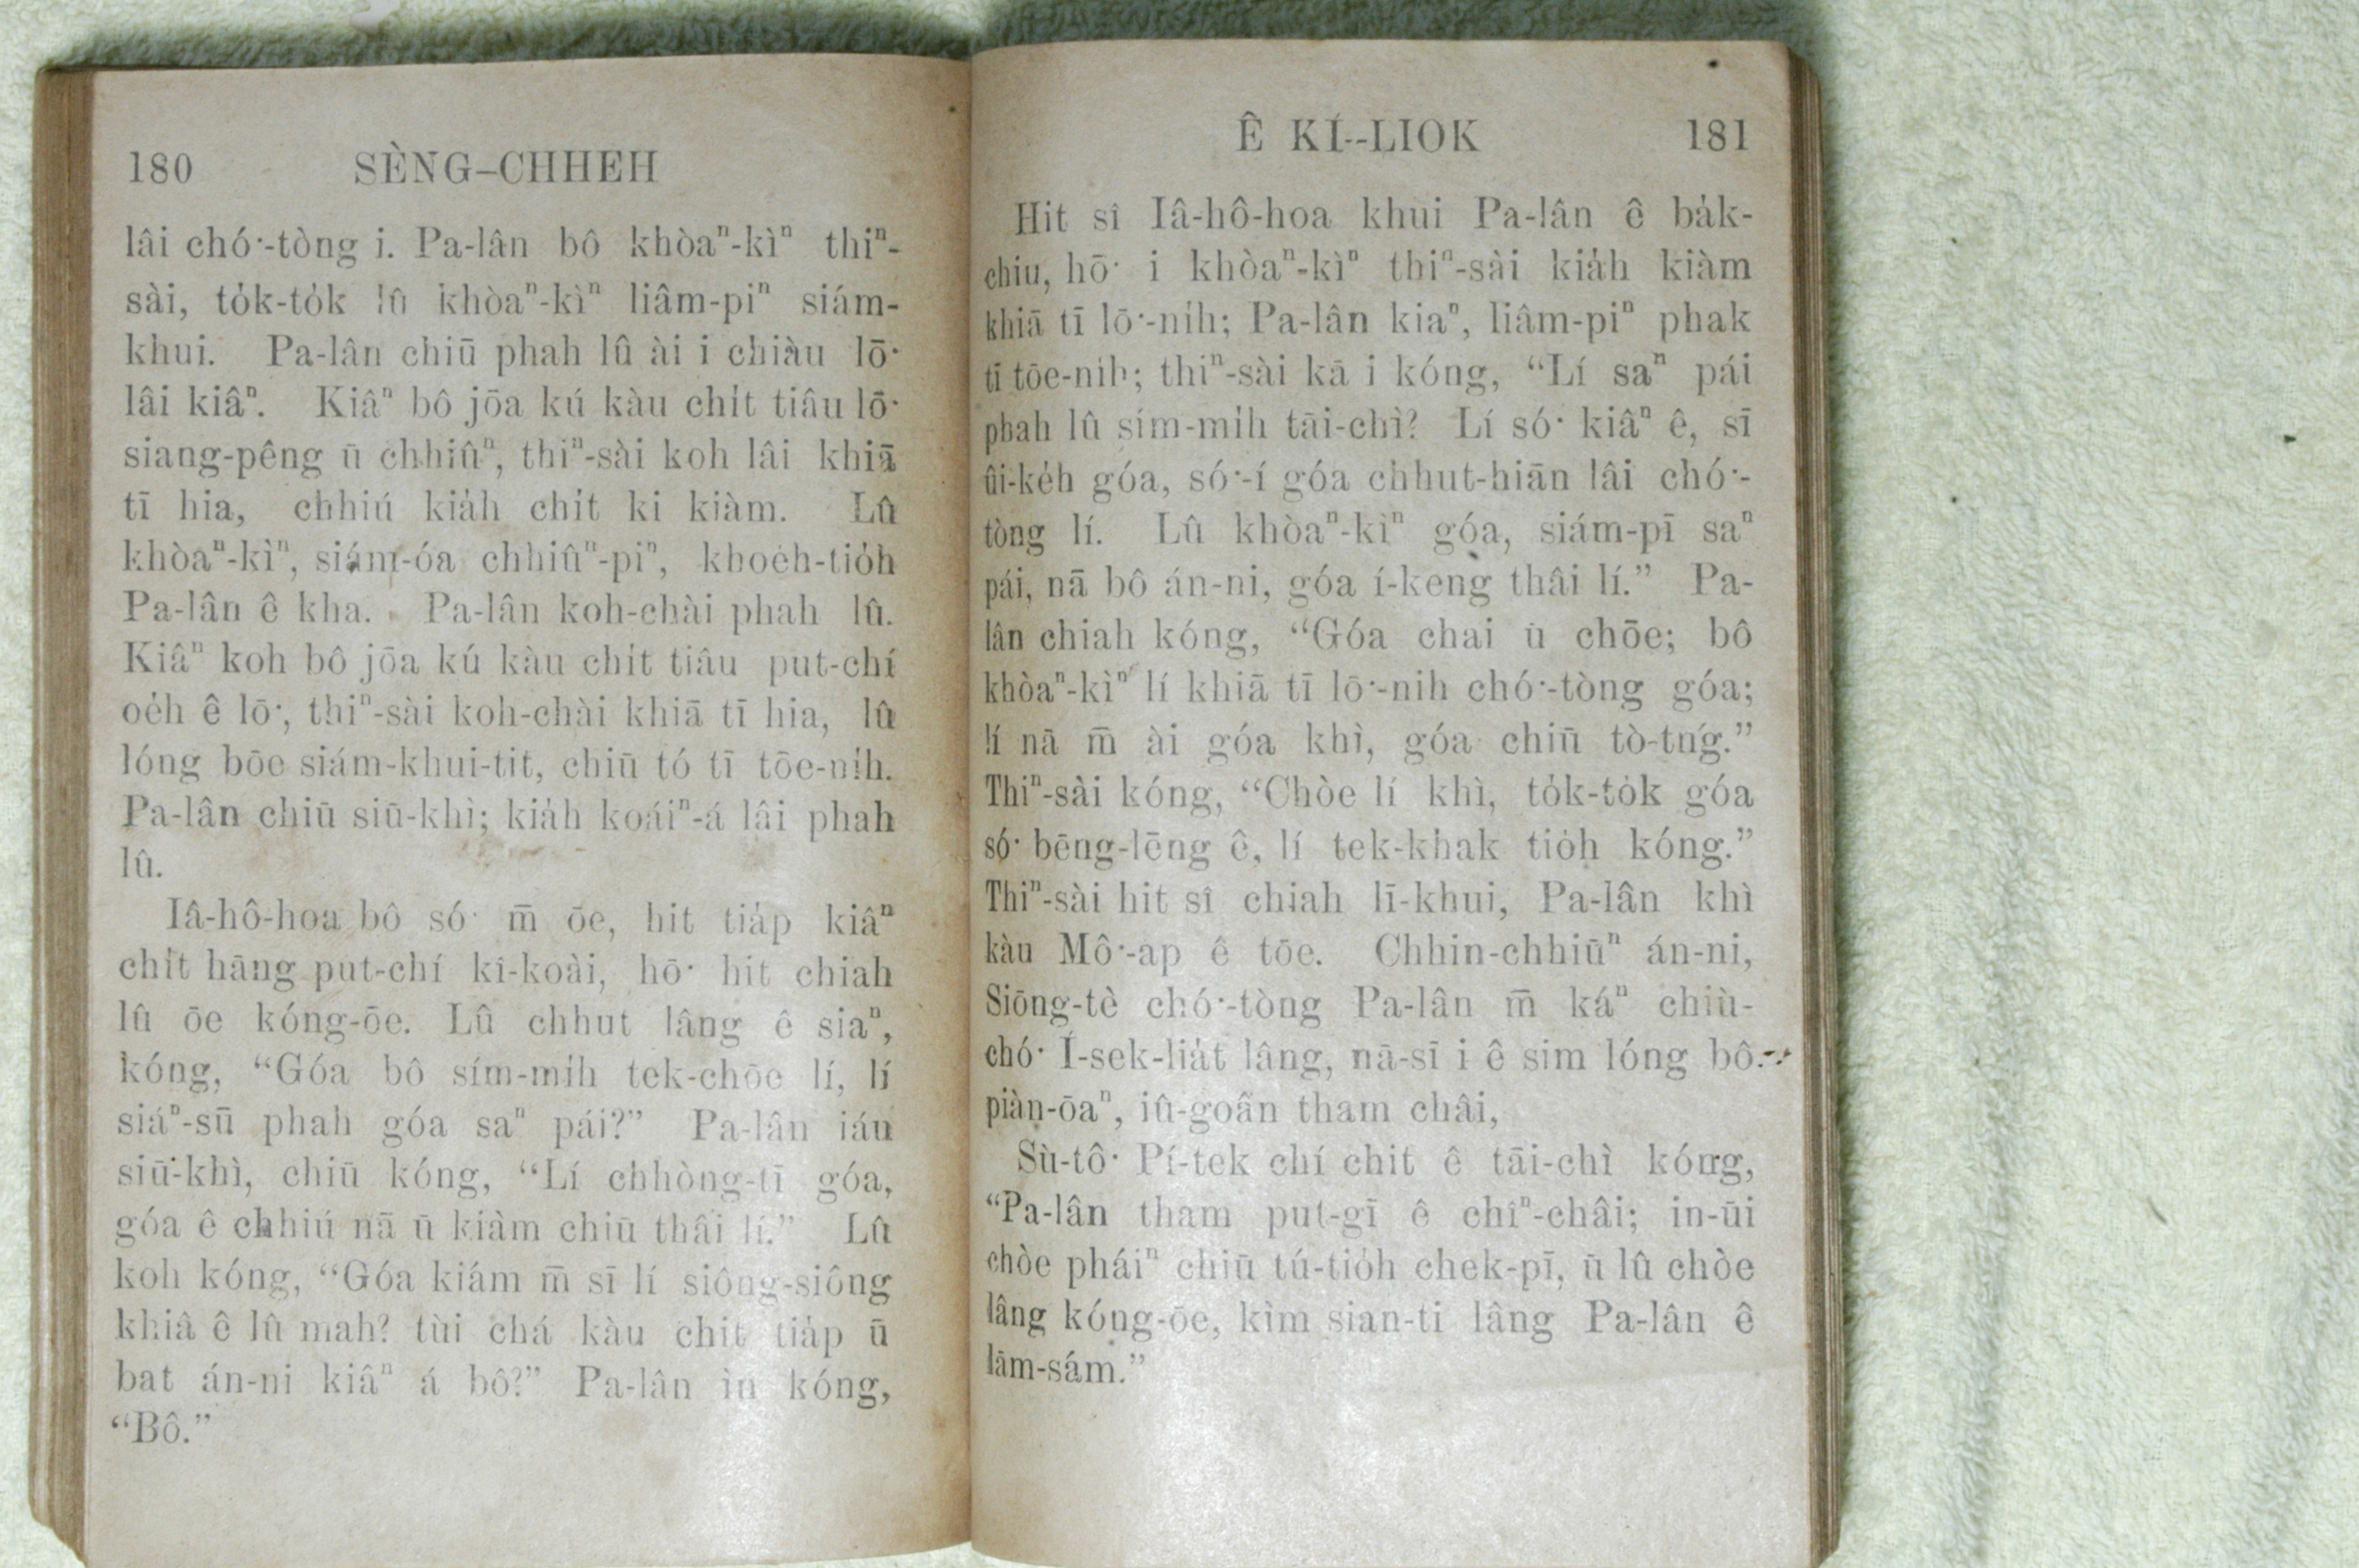 180 SÈNG-CHHEH
lâi chó͘-tòng i. Pa-lân bô khòaⁿ-kìⁿ thiⁿ-
sài, to̍k-to̍k lû khòaⁿ-kìⁿ liâm-piⁿ siám-
khui. Pa-lân chiū phah lû ài i chiàu lō͘
lâi kiâⁿ. Kiâⁿ bô jōa kú kàu chi̍t tiâu lō͘
siang-pêng ū chhiûⁿ, thiⁿ-sài koh lâi khiā
tī hia, chhiú kia̍h chi̍t ki kiàm. Lû
khòaⁿ-kìⁿ, siám-óa chhiûⁿ-piⁿ, khoeh-tio̍h
Pa-lân ê kha. Pa-lân koh-chài phah lû.
Kiâⁿ koh bô jōa kú kàu chi̍t tiâu put-chí
oe̍h ê lō͘, thiⁿ-sài koh-chài khiā tī hia, lû
lóng bōe siám-khui-tit, chiū tó tī tōe-ni̍h.
Pa-lân chiū siū-khì; kia̍h koáiⁿ-á lâi phah
lû.
Iâ-hô-hoa bô só͘ m̄ ōe, hit tia̍p kiâⁿ
chi̍t hāng put-chí kî-koài, hō͘ hit chiah
lû ōe kóng-ōe. Lû chhut lâng ê siaⁿ,
kóng, “Góa bô sím-mi̍h tek-chōe lí, lí
siáⁿ-sū phah góa saⁿ pái?” Pa-lân iáu
siū-khì, chiū kóng, “Lí chhòng-tī góa,
góa ê chhiú nā ū kiàm chiū thâi lí.” Lû
koh kóng, “Góa kiám m̄ sī lí siông-siông
khiâ ê lû mah? tùi chá kàu chit tia̍p ū
bat án-ni kiâⁿ á bô?” Pa-lân ìn kóng,
“Bô.”
Ê KÍ--LIOK 181
Hit sî Iâ-hô-hoa khui Pa-lân ê ba̍k-
chiu, hō͘ i khòaⁿ-kìⁿ thiⁿ-sài kia̍h kiàm
khiā tī lō͘-ni̍h; Pa-lân kiaⁿ, liâm-piⁿ phak
tī tōe-nih; thiⁿ-sài kā i kóng, “Lí saⁿ pái
phah lû sím-mi̍h tāi-chì? Lí só͘ kiâⁿ ê, sī
ûi-ke̍h góa, só͘-í góa chhut-hiān lâi chó͘-
tòng lí. Lû khòaⁿ-kìⁿ góa, siám-pī saⁿ
pái, nā bô án-ni, góa í-keng thâi lí.” Pa-
lân chiah kóng, “Góa chai ū chōe; bô
khòaⁿ-kìⁿ lí khiā tī lō͘-nih chó͘-tòng góa;
lí nā m̄ ài góa khì, góa chiū tò-tńg.”
Thiⁿ-sài kóng, “Chòe lí khì, to̍k-to̍k góa
só͘ bēng-lēng ê, lí tek-khak tio̍h kóng.”
Thiⁿ-sài hit sî chiah lī-khui, Pa-lân khì
kàu Mô͘-ap ê tōe. Chhin-chhiūⁿ án-ni,
Siōng-tè chó͘-tòng Pa-lân m̄ káⁿ chiù-
chó͘ Í-sek-lia̍t lâng, nā-sī i ê sim lóng bô
piàn-ōaⁿ, iû-goân tham châi,
Sù-tô͘ Pí-tek chí chit ê tāi-chì kóng,
“Pa-lân tham put-gī ê chîⁿ-châi; in-ūi
chòe pháiⁿ chiū tú-tio̍h chek-pī, ū lû chòe
lâng kóng-ōe, kìm sian-ti lâng Pa-lân ê
lām-sám.”